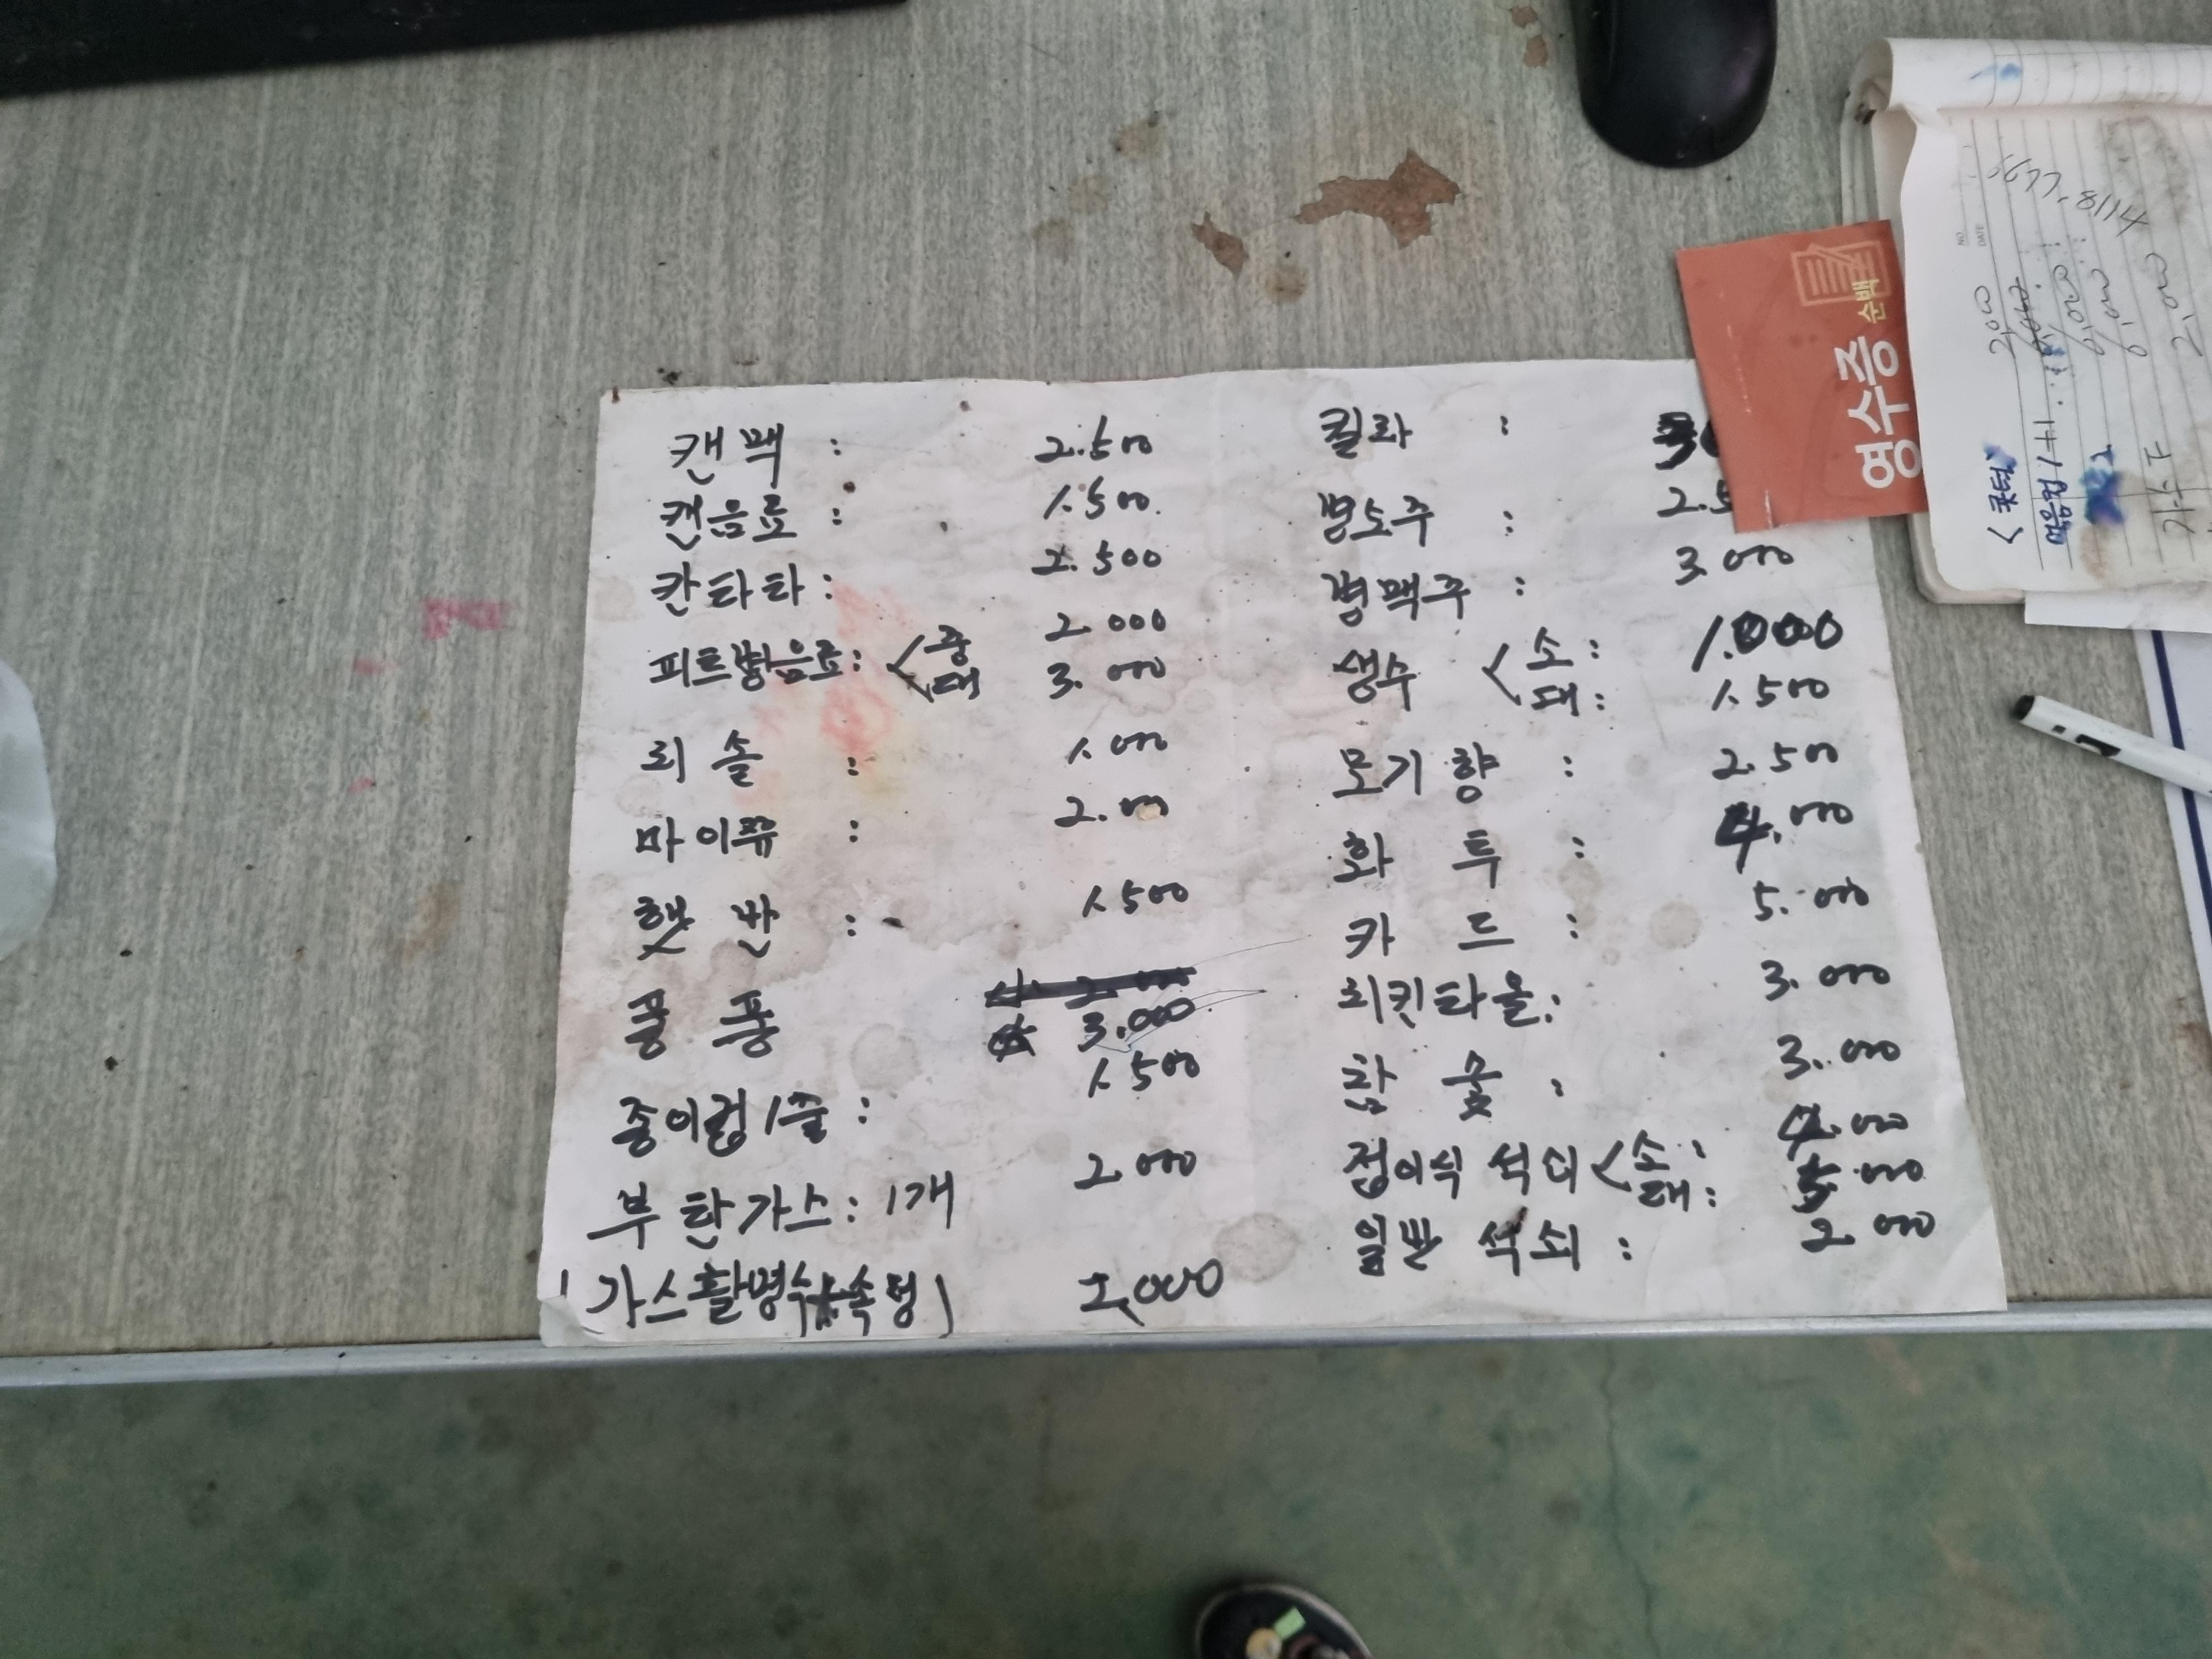 캔맥 : 2.500
캔음료 : 1.500
칸타타 : 2.500
피트병음료 : < 중 2.000
대 3.000
리솔 : 1.000
마이쮸 : 2.000
햇반 : 1.500
퐁퐁
3.000
종이컵 1줄 : 1.500
부탄가스 : 1개 2.000
(가스활명수 속청) 2,000
킬라 :
병소주 : 2.5
병맥주 : 3.000
생수 < 소 : 1.000
대 : 1.500
모기향 : 2.500
화투 : 4.000
카드 : 5.000
치킨타올 : 3.000
참숯 : 3.000
접이식 석쇠 < 소 : 4.000
대 : 5.000
일반 석쇠 : 2.000
영수증
순백
NO
DATE
5677-8114